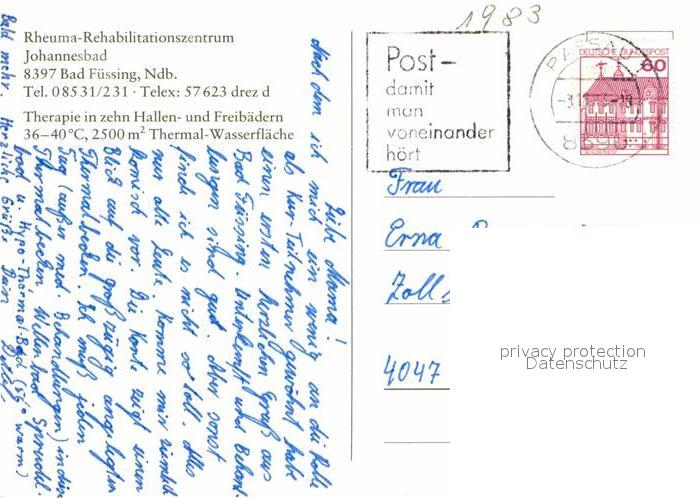 1983
Rheuma-Rehabilitationszentrum
Johannesbad
8397 Bad Füssing, Ndb.
Tel. 08531/231 · Telex: 57623 drez d
Therapie in zehn Hallen- und Freibädern
36–40°C, 2500 m² Thermal-Wasserfläche
Post-
damit
man
voneinander
hört
PASSAU
DEUTSCHE BUNDESPOST
60
Frau
Erna
Zoll
4047
privacy protection
Datenschutz
Liebe Mama!
Nach dem ich mich ein wenig an die Rolle
als Kur-Teilnehmer gewöhnt habe
einen ersten herzlichen Gruß aus
Bad Füssing. Unterkunft und Behand-
lungen sind gut. Aber sonst
finde ich es nicht so toll. Alles
nur alte Leute. Komme mir ziemlich
komisch vor. Die Karte zeigt einen
Blick auf die großzügig angelegten
Thermalbecken. Ich muß jeden
Tag (außer med. Behandlungen) in die
Thermalbecken Wellenbad Sprudel-
bad u. Hypo-Thermal-Bad (36° warm)
Bald mehr. Herzliche Grüße Dein